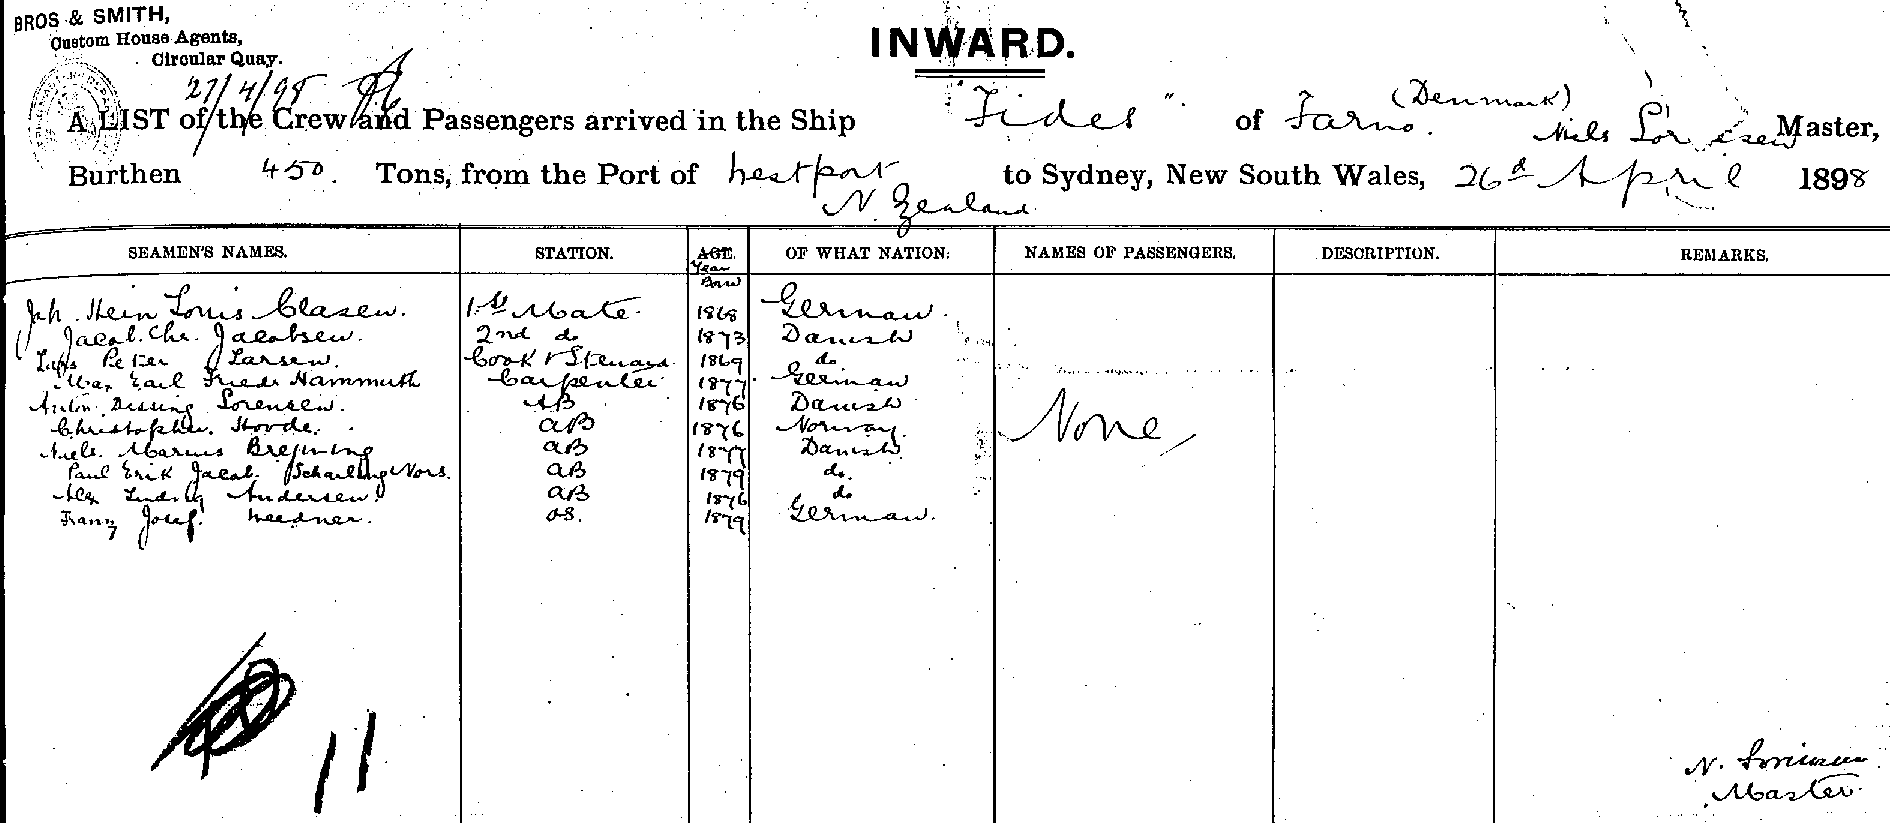 BROS & SMITH,
Custom House Agents,
Circular Quay.
27/4/98
INWARD.
A LIST of the Crew and Passengers arrived in the Ship "Fides". of Farno. (Denmark) Niels Master,
Burthen 450. Tons, from the Port of Westport N. Zealand to Sydney, New South Wales, 26d April 1898
SEAMEN'S NAMES. STATION. AGE. Year Born OF WHAT NATION: NAMES OF PASSENGERS. DESCRIPTION. REMARKS.
Joh. Hein Louis Clasen. 1st Mate. 1868 German.
Jacob. Chr. Jacobsen. 2nd do 1873 Danish
Peter Larsen. Cook & Steward 1869 do
Max Earl Friedr Hammuth Carpenter 1877 German
Anton Dissing Sorensen. AB 1876 Danish
Christopher Hovde. AB 1876 Norway.
Niels Marius Brejning AB 1877 Danish
Paul Erik Jacob. Scharling Nors. AB 1879 do.
Alex Ludvig Andersen. AB 1876 do
Franz Josef. Weedner. OS. 1879 German.
None
11
N. Sorensen
Master.